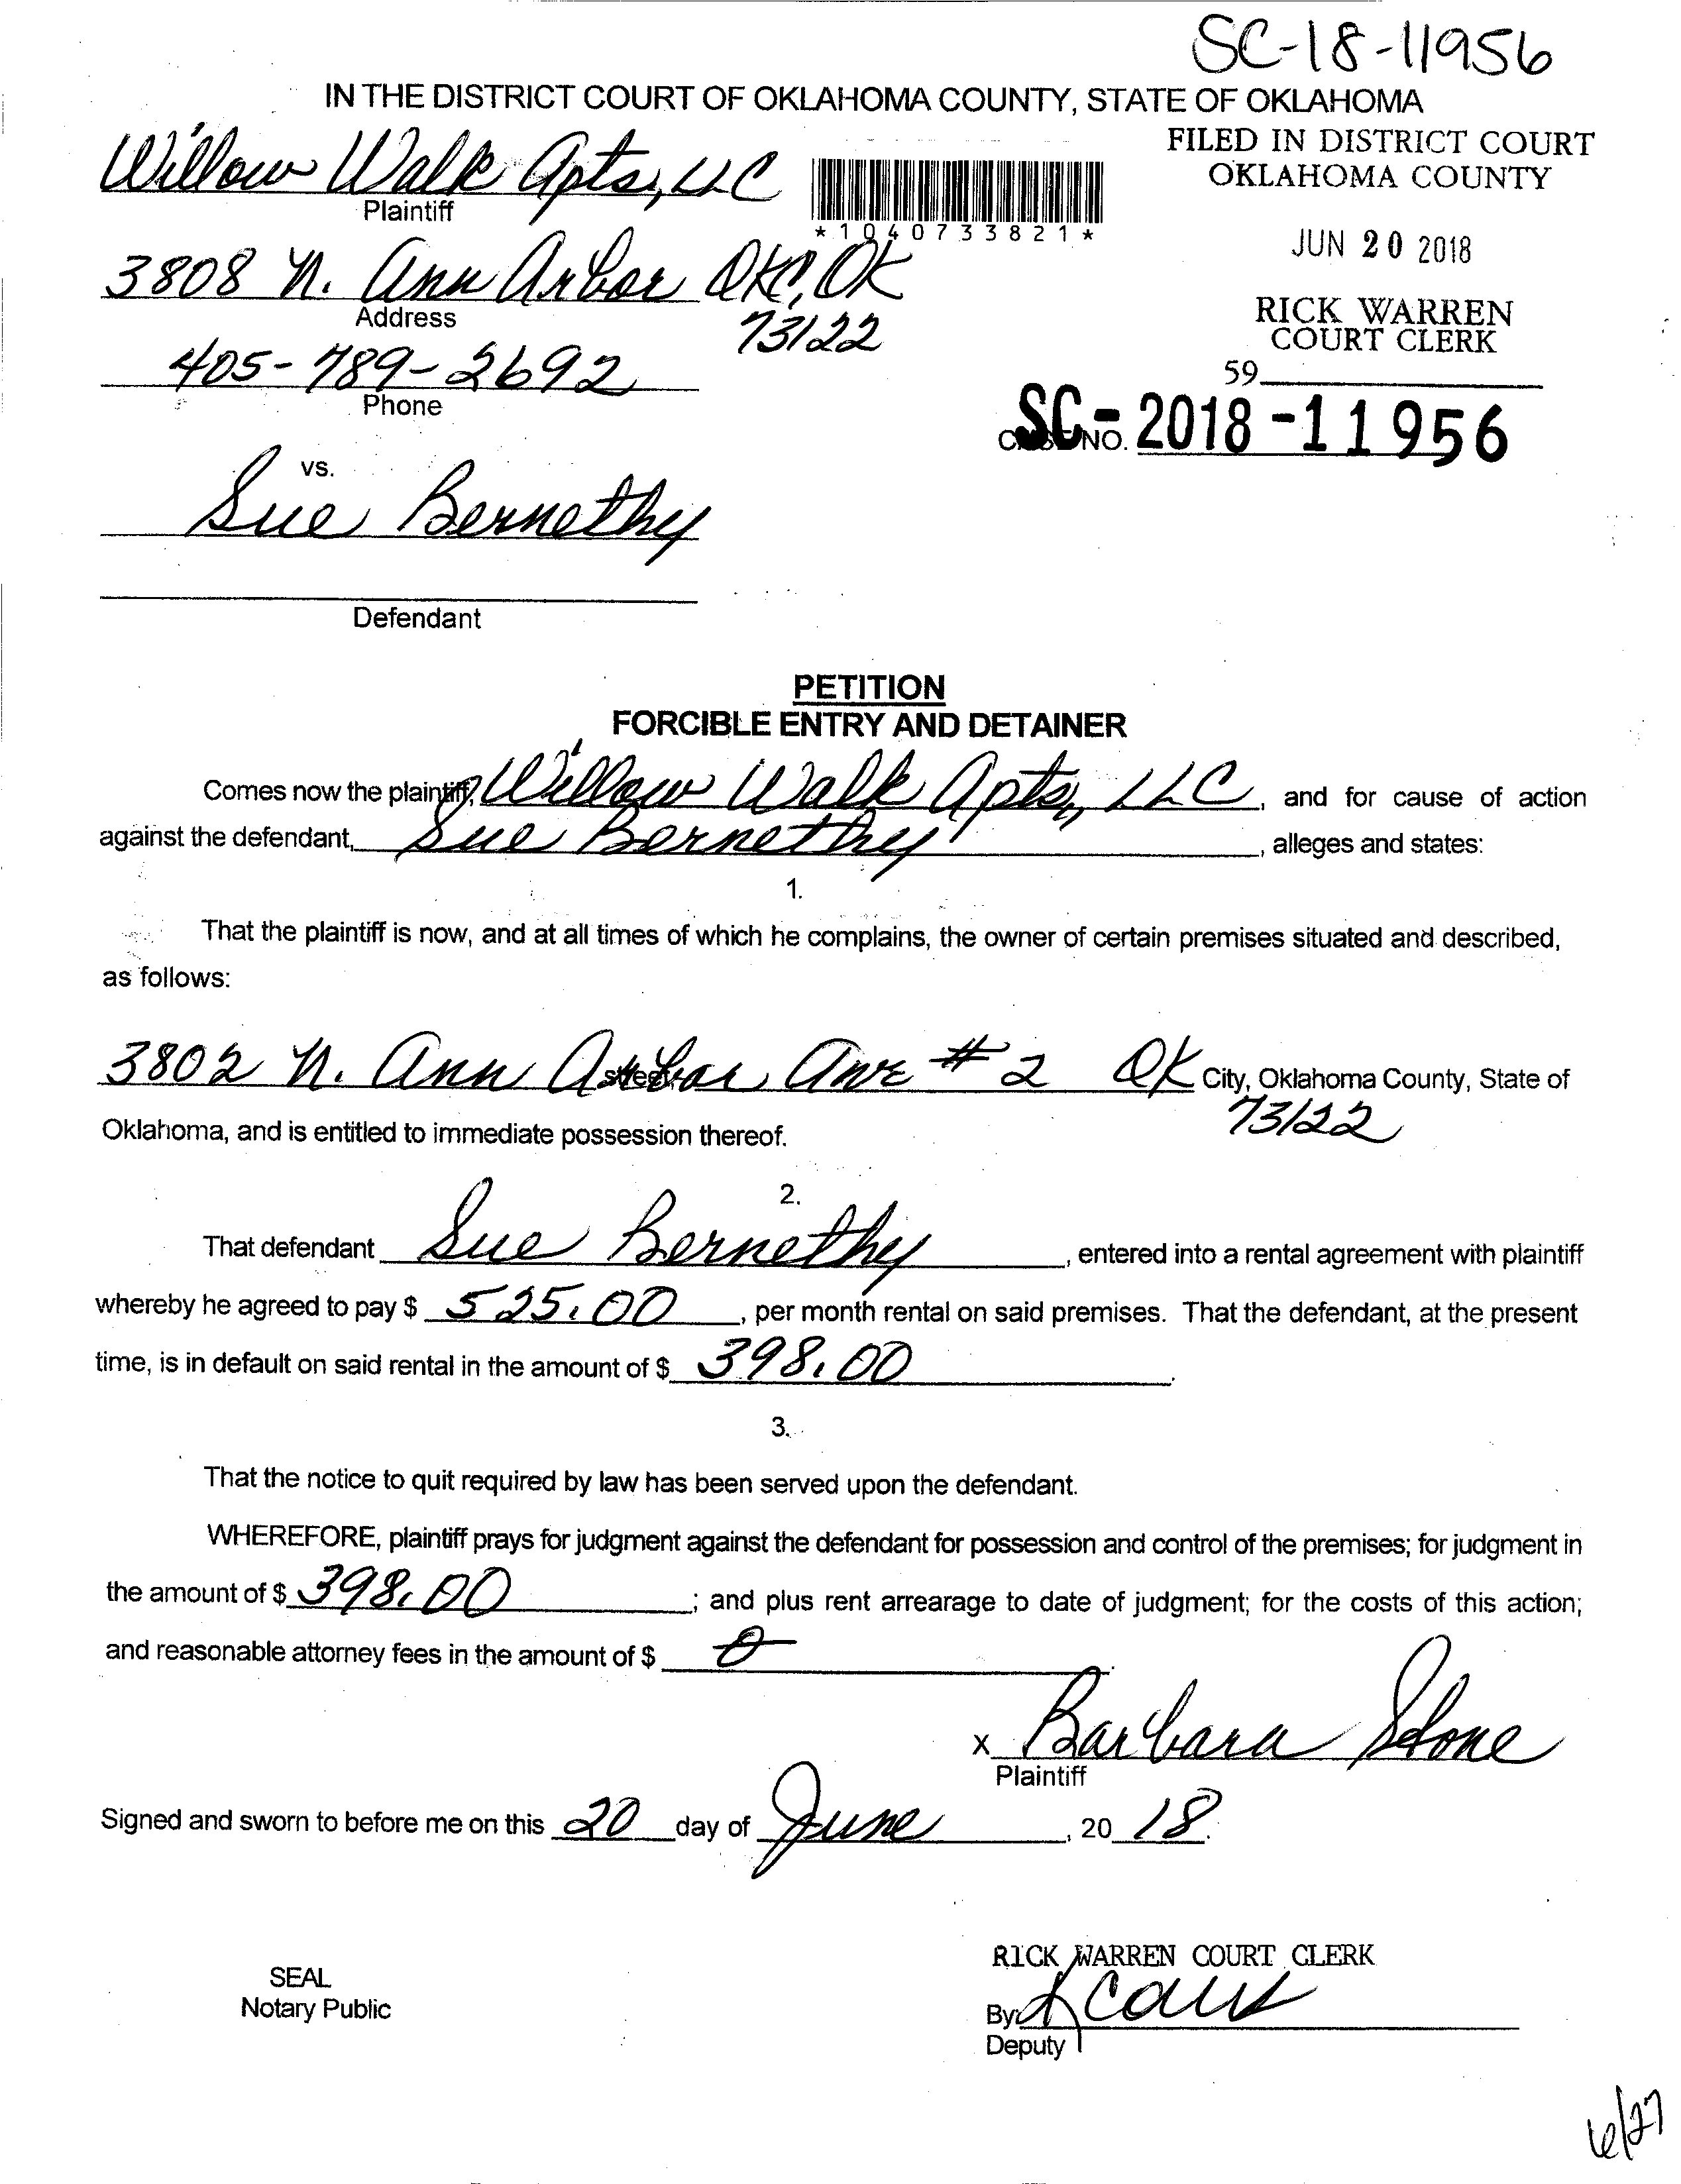 SC-18-11956
IN THE DISTRICT COURT OF OKLAHOMA COUNTY, STATE OF OKLAHOMA
Willow Walk Apts, LLC
Plaintiff
*1040733821*
FILED IN DISTRICT COURT
OKLAHOMA COUNTY
JUN 20 2018
RICK WARREN
COURT CLERK
59
3808 N. Ann Arbor OKC, OK
Address
73122
405-789-2692
Phone
SC-2018-11956
NO.
vs.
Sue Bernethy
Defendant
PETITION
FORCIBLE ENTRY AND DETAINER
Comes now the plaintiff, Willow Walk Apts, LLC, and for cause of action
against the defendant, Sue Bernethy, alleges and states:
1.
That the plaintiff is now, and at all times of which he complains, the owner of certain premises situated and described,
as follows:
3802 N. Ann Arbor Ave #2 OK City, Oklahoma County, State of
street
73122
Oklahoma, and is entitled to immediate possession thereof.
2.
That defendant Sue Bernethy, entered into a rental agreement with plaintiff
whereby he agreed to pay $ 525.00, per month rental on said premises. That the defendant, at the present
time, is in default on said rental in the amount of $ 398.00.
3.
That the notice to quit required by law has been served upon the defendant.
WHEREFORE, plaintiff prays for judgment against the defendant for possession and control of the premises; for judgment in
the amount of $ 398.00; and plus rent arrearage to date of judgment; for the costs of this action;
and reasonable attorney fees in the amount of $ 0.
X Barbara Stone
Plaintiff
Signed and sworn to before me on this 20 day of June, 20 18.
SEAL
Notary Public
RICK WARREN COURT CLERK
By
Deputy
6/27